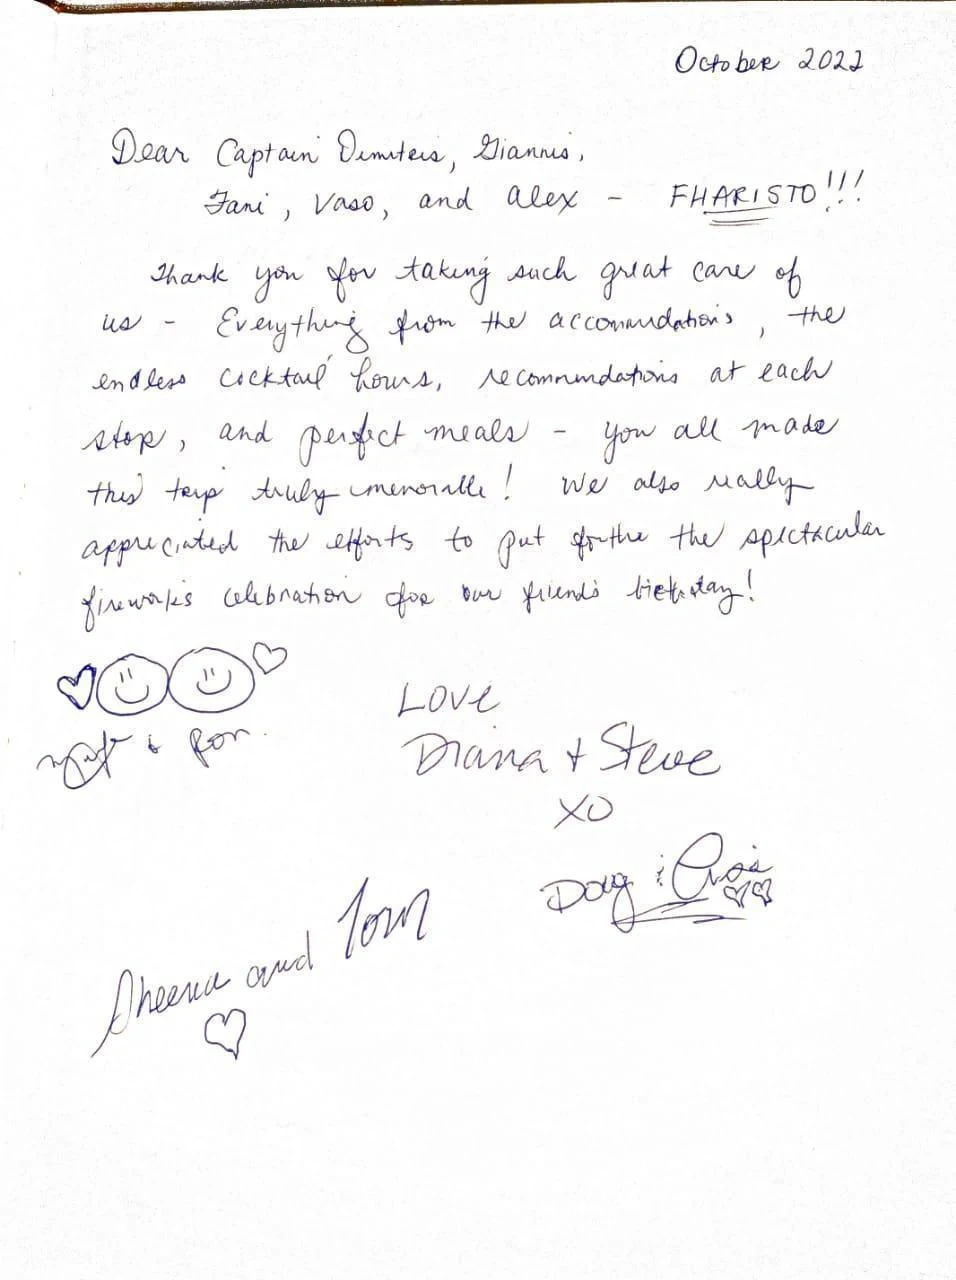 October 2022
Dear Captain Dimitris, Giannis,
Fani, Vaso, and Alex - FHARISTO!!!
Thank you for taking such great care of
us - Everything from the accommodations, the
endless cocktail hours, recommendations at each
stop, and perfect meals - you all made
this trip truly memorable! We also really
appreciated the efforts to put forthe the spectacular
fireworks celebration for our friends birthday!
Love
& Ron.
Diana + Steve
XO
Doug &
Sheena and Tom